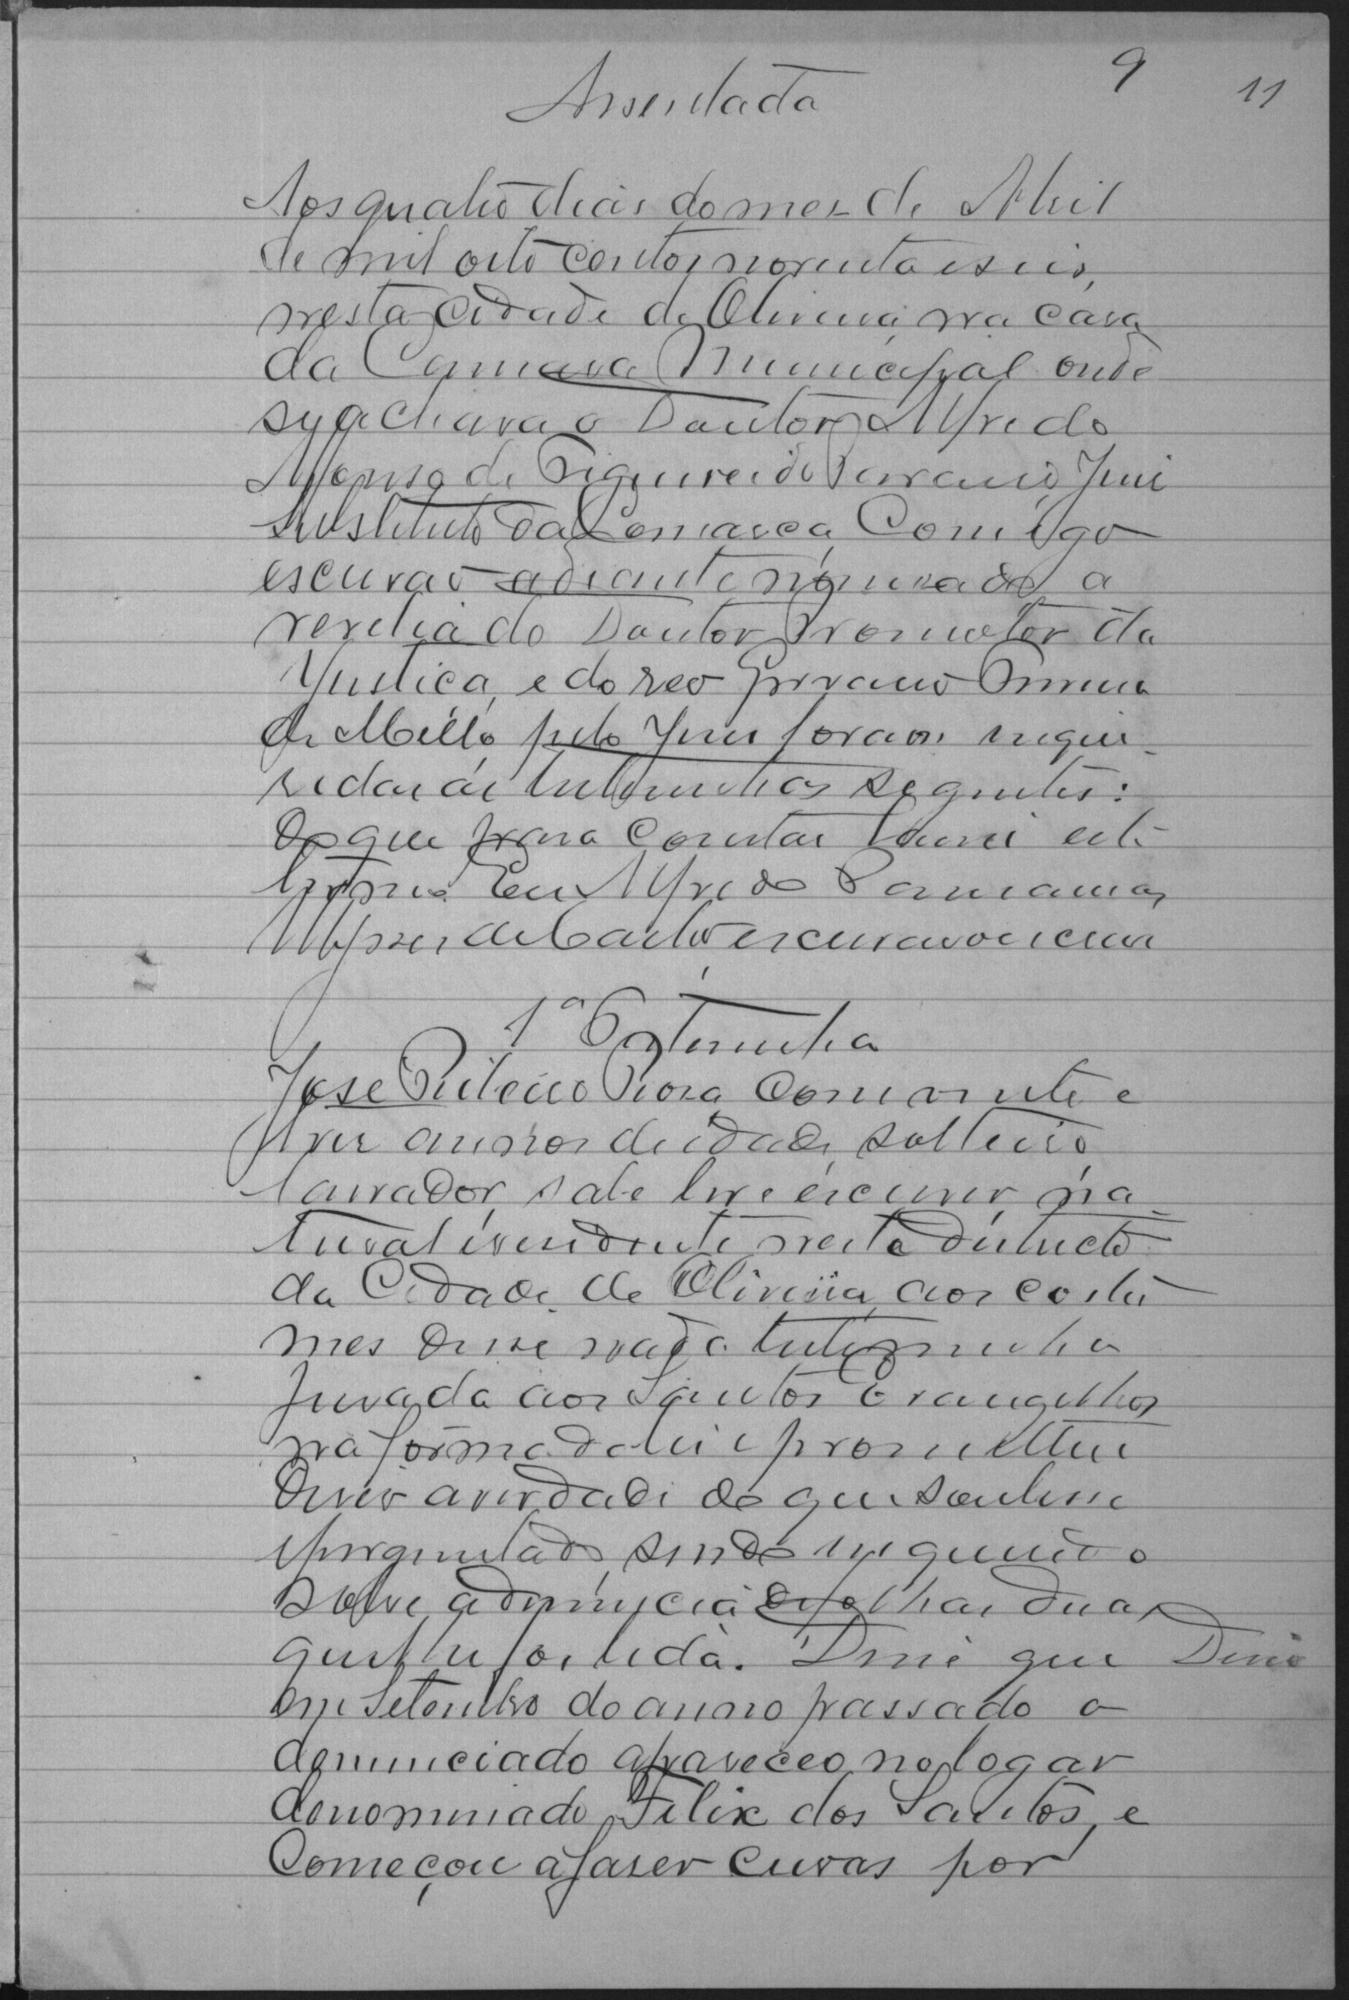 9
11
Assentada
Aos quatro dias do mes de Abril
de mil oito centos noventa e seis,
nesta Cidade de Oliveira na casa
da Camara Municipal onde
se achava o Doutor Alfredo
Afonso de Figueiredo Juiz
Substituto da Comarca, Comigo
escrivão adiante nomeado, a
revelia do Doutor Promotor da
Justiça, e do reo Pereira
de Mello, pelo Juiz forão inque-
ridas as testemunhas seguintes:
Do que para constar lavrei este
termo. Eu Alfredo
de Castro escrivão escrevi
1ª Testemunha
Jose Ribeiro Rosa, com vinte e
tres annos de idade, solteiro
lavrador, sabe ler e escrever, na-
tural e residente neste districto
da Cidade de Oliveira, aos costu
mes disse nada. testemunha
jurada aos Santos Evangelhos
na forma da lei e prometteu
diser a verdade do que soubesse
e perguntado, sendo inquirido
sobre a denuncia de folhas duas
que lhe foi lida. Disse que Disse
em Setembro do anno passado o
denunciado appareceo no logar
denominado Felix dos Santos, e
Começou a faser curas por